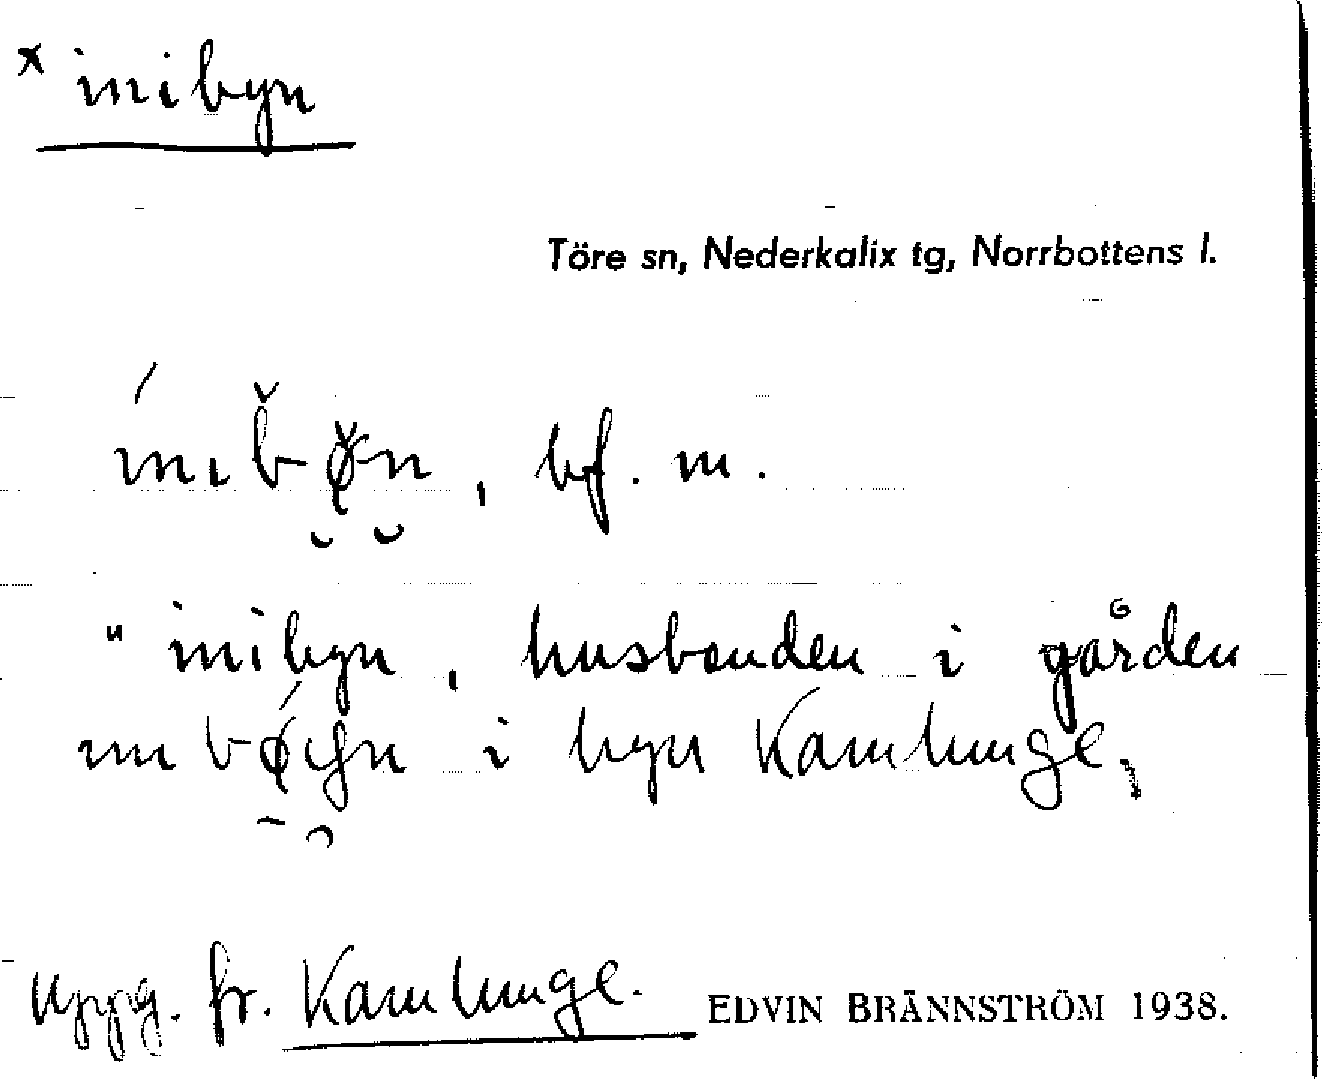 x inibyn
Töre sn, Nederkalix tg, Norrbottens l.
bf. m.
"inibyn, husbonden i gården
i byn Kamlunge,
Uppg. fr. Kamlunge. EDVIN BRÄNNSTRÖM 1938.